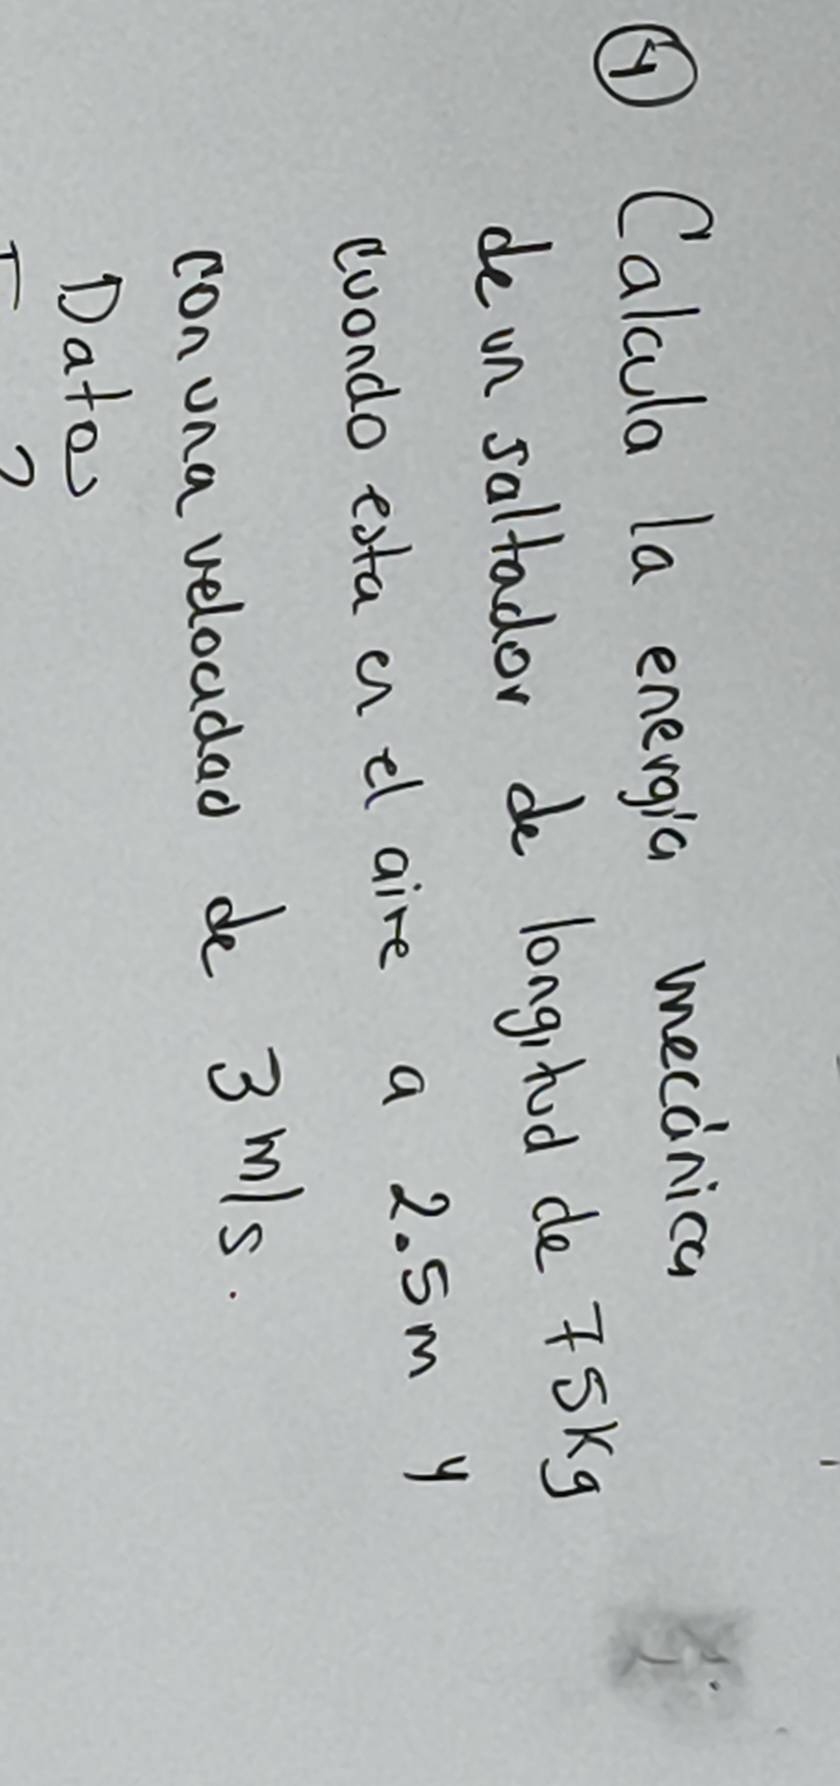 ④ Calcula la energía mecánica
de un saltador de longitud de 75kg
cuando esta en el aire a 2.5m y
con una velocidad de 3 m/s.
Datos